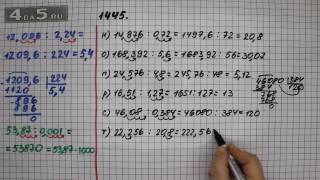 4AD5.RU
1445.
12,096 : 2,24 =
1209,6 : 224 = 5,4
1209,6 | 224
1120 | 5,4
896
896
0
53,87 : 0,001 =
= 53870 = 53,87·1000
н) 14,976 : 0,72 = 1497,6 : 72 = 20,8
о) 168,392 : 5,6 = 1683,92 : 56 = 30,07
п) 24,576 : 4,8 = 245,76 : 48 = 5,12
р) 16,51 : 1,27 = 1651 : 127 = 13
с) 46,08 : 0,384 = 46080 : 384 = 120
т) 22,256 : 20,8 = 222,56
46080 | 384
384 | 120
768
768
0